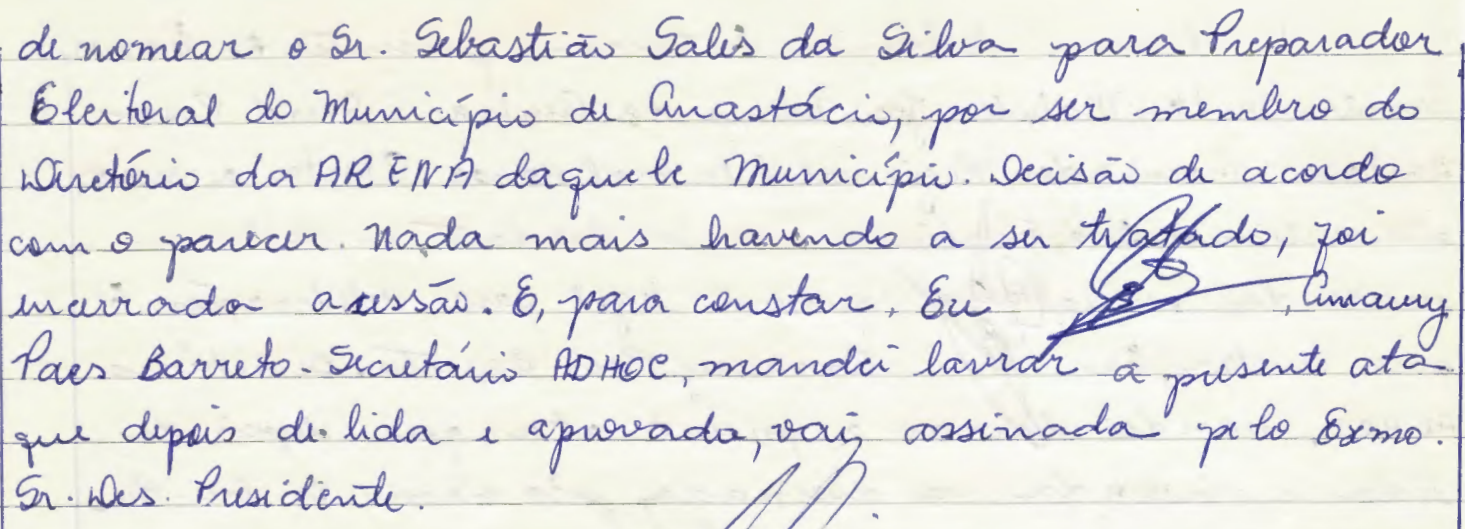 de nomear o Sr. Sebastião Sales da Silva para Preparador
Eleitoral do Município de Anastácio, por ser membro do
Diretório da ARENA daquele Município. Decisão de acordo
com o parecer. Nada mais havendo a ser tratado, foi
encerrada a sessão. E, para constar. Eu , Amaury
Paes Barreto - Secretário ADHOC, mandei lavrar a presente ata
que depois de lida e aprovada, vai, assinada pelo Exmo.
Sr. Des. Presidente.